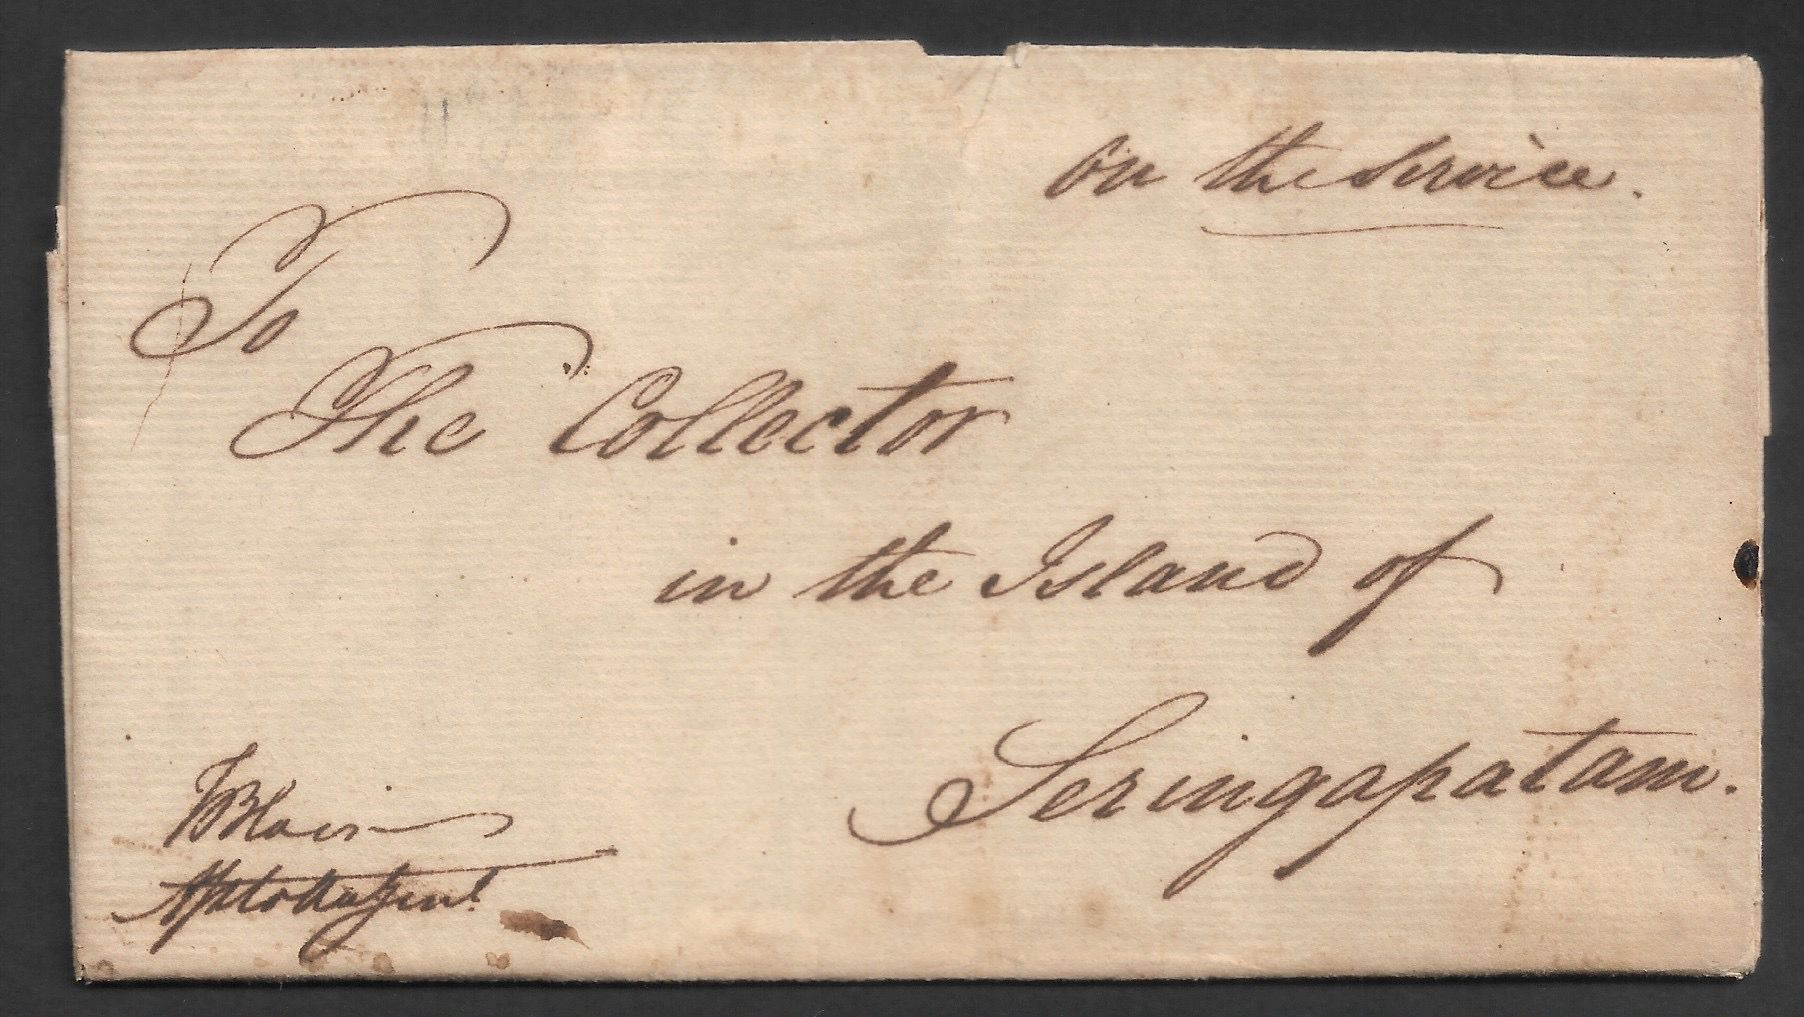 On the Service.
To
The Collector
in the Island of
Seringapatam.
Blair